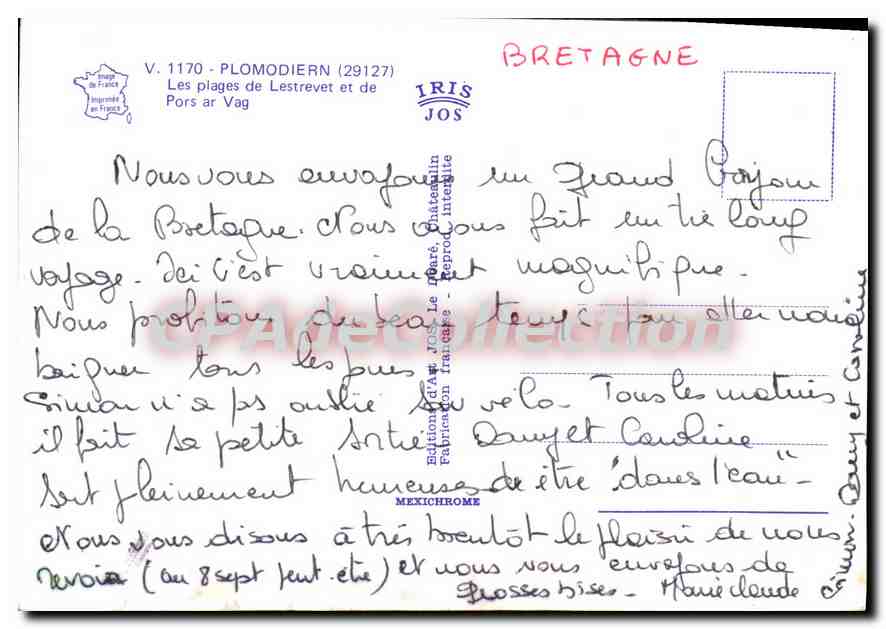 BRETAGNE
V. 1170 - PLOMODIERN (29127)
Les plages de Lestrevet et de
Pors ar Vag
Image
de France
Imprimée
en France
IRIS
JOS
Nous vous envoyons un grand Bonjour
de la Bretagne. Nous avons fait un très long
voyage. Ici c'est vraiment magnifique.
Nous profitons du beau temps pour aller nous
baigner tous les jours.
Simon n'a pas oublié son vélo. Tous les matins
il fait sa petite sortie. Dany et Caroline
sont pleinement heureuses de être "dans l'eau".
Nous vous disons à très bientôt le plaisir de nous
revoir (au 8 sept peut-être) et nous vous envoyons de
grosses bises. Marie claude
Simon. Dany et Caroline
Editions d'Art JOS Le Doaré, Châteaulin
Fabrication française - Reprod. interdite
MEXICHROME
CPArteCollection